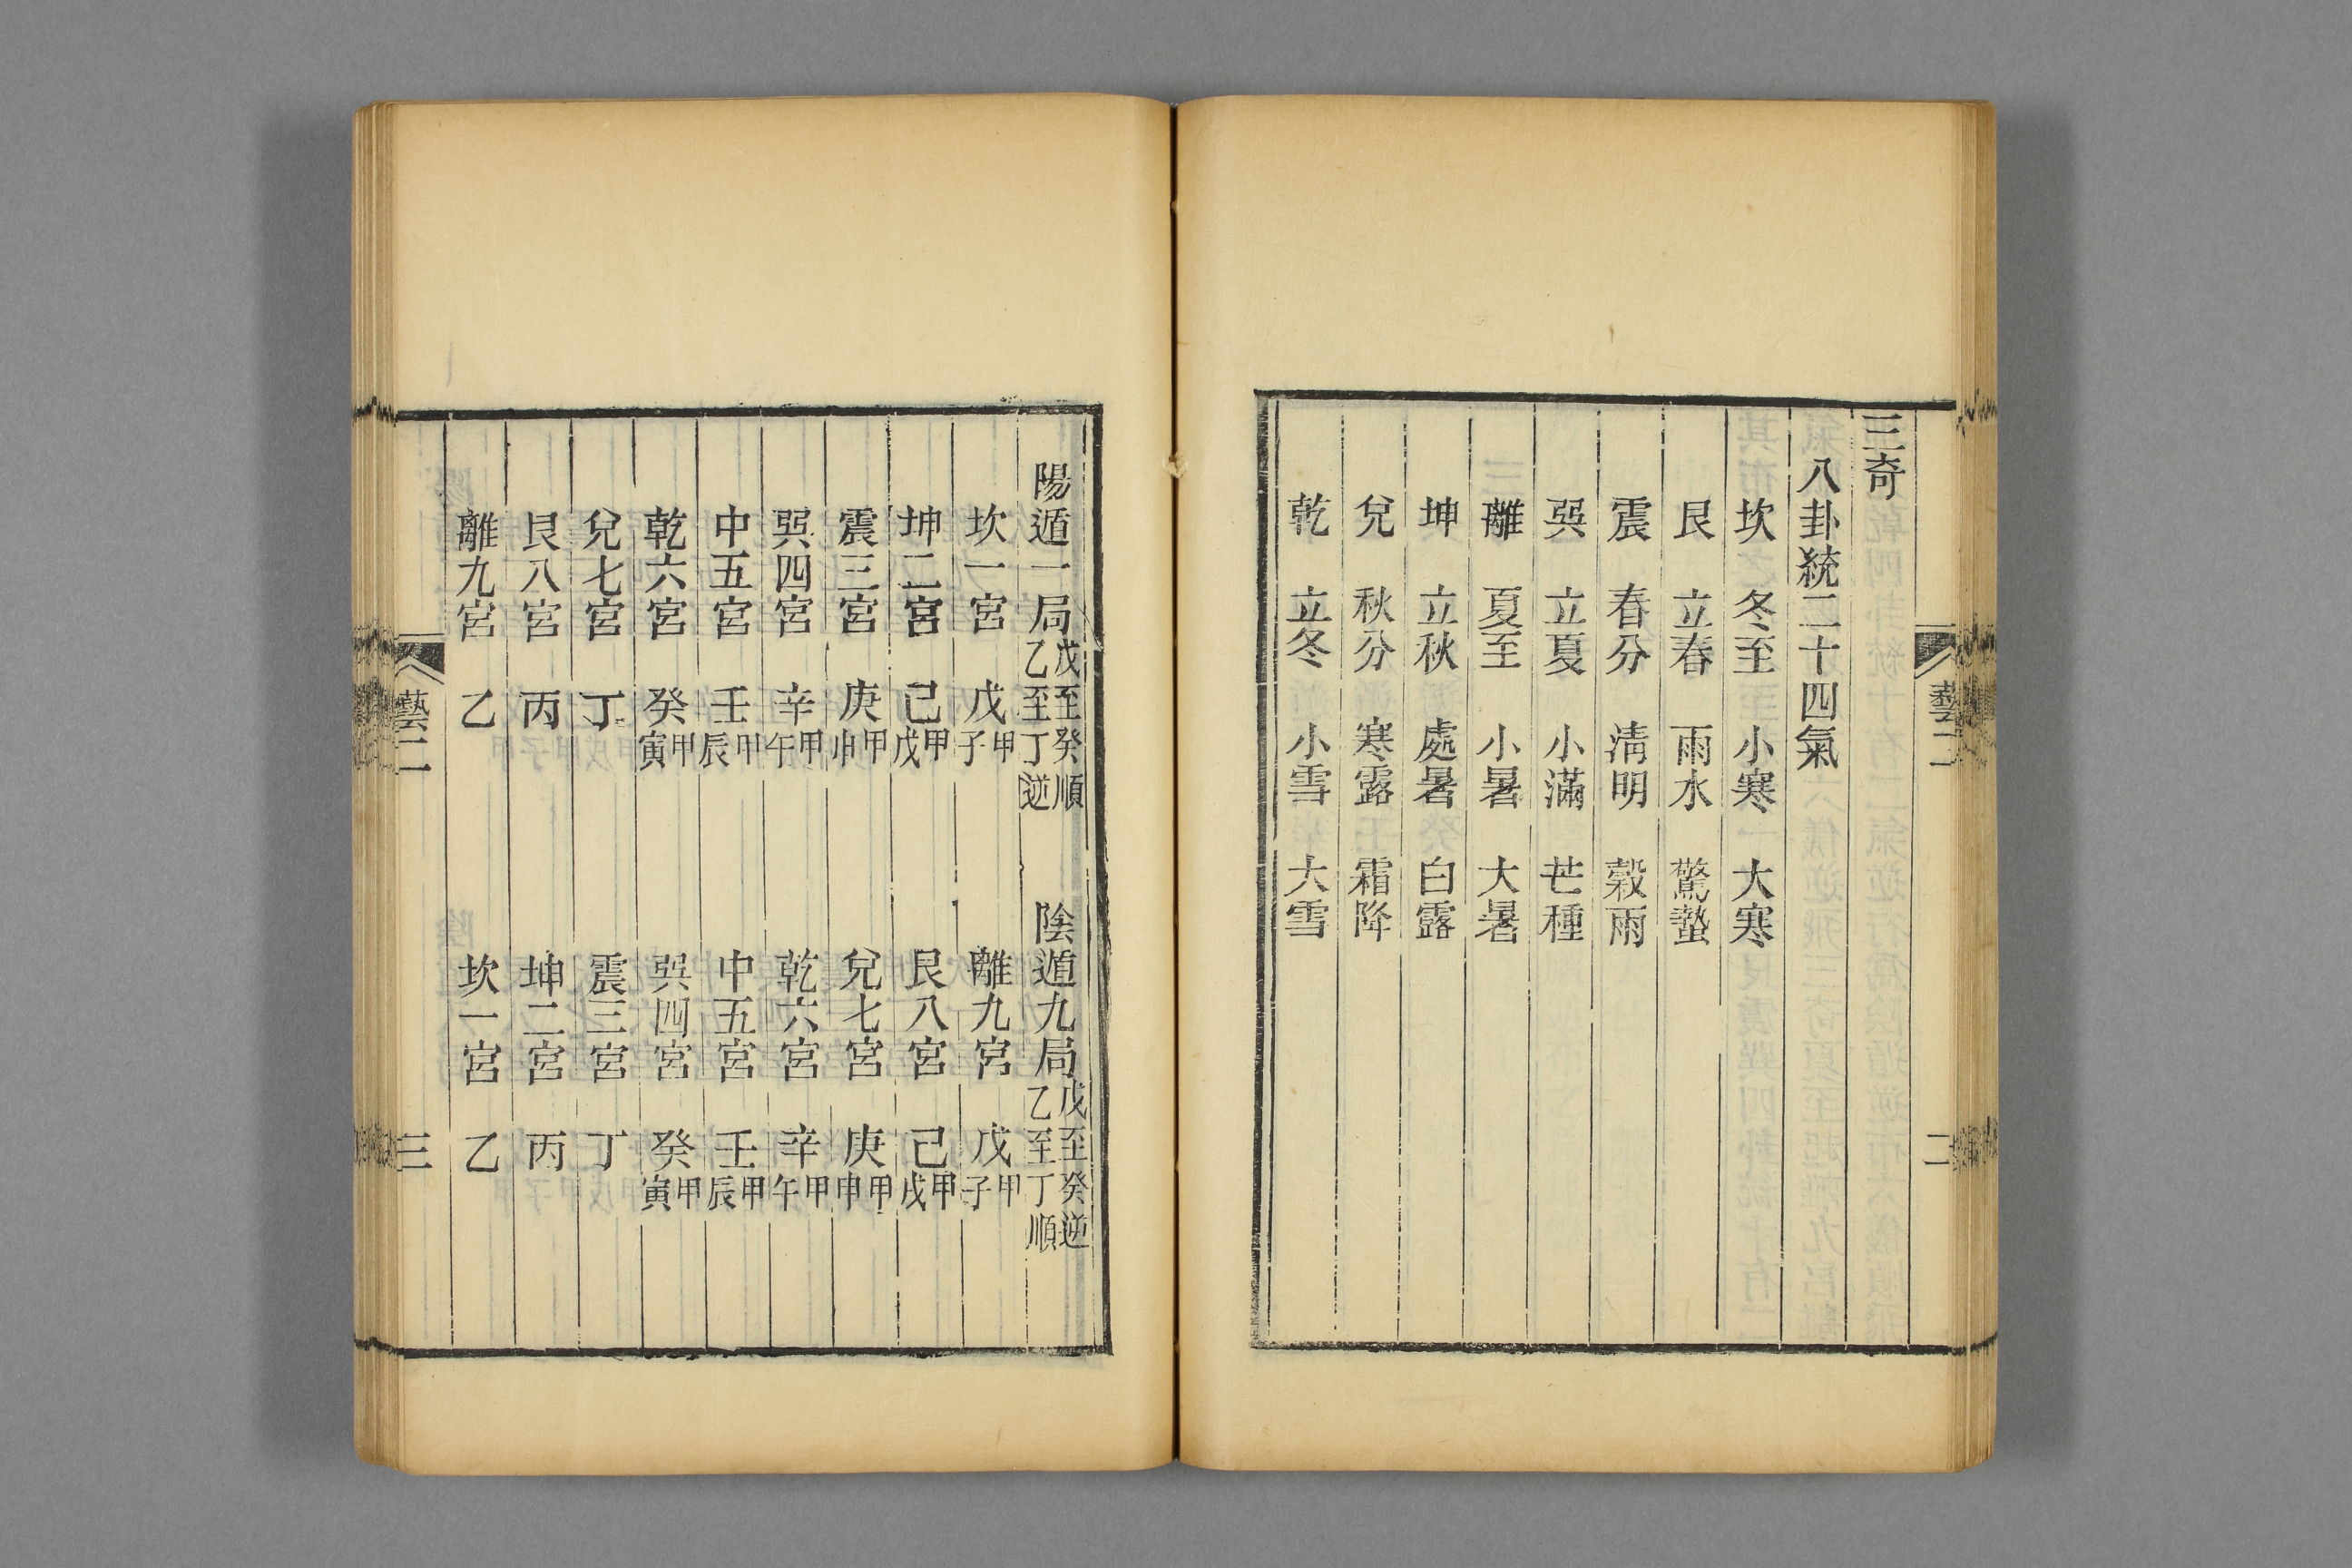 三奇
八卦統二十四氣
坎　冬至　小寒　大寒
艮　立春　雨水　驚蟄
震　春分　清明　穀雨
巽　立夏　小滿　芒種
離　夏至　小暑　大暑
坤　立秋　處暑　白露
兌　秋分　寒露　霜降
乾　立冬　小雪　大雪
藝二　二
陽遁一局戊至癸順乙至丁逆　陰遁九局戊至癸逆乙至丁順
坎一宮　戊甲子　離九宮　戊甲子
坤二宮　己甲戌　艮八宮　己甲戌
震三宮　庚甲申　兌七宮　庚甲申
巽四宮　辛甲午　乾六宮　辛甲午
中五宮　壬甲辰　中五宮　壬甲辰
乾六宮　癸甲寅　巽四宮　癸甲寅
兌七宮　丁　震三宮　丁
艮八宮　丙　坤二宮　丙
離九宮　乙　坎一宮　乙
藝二　三